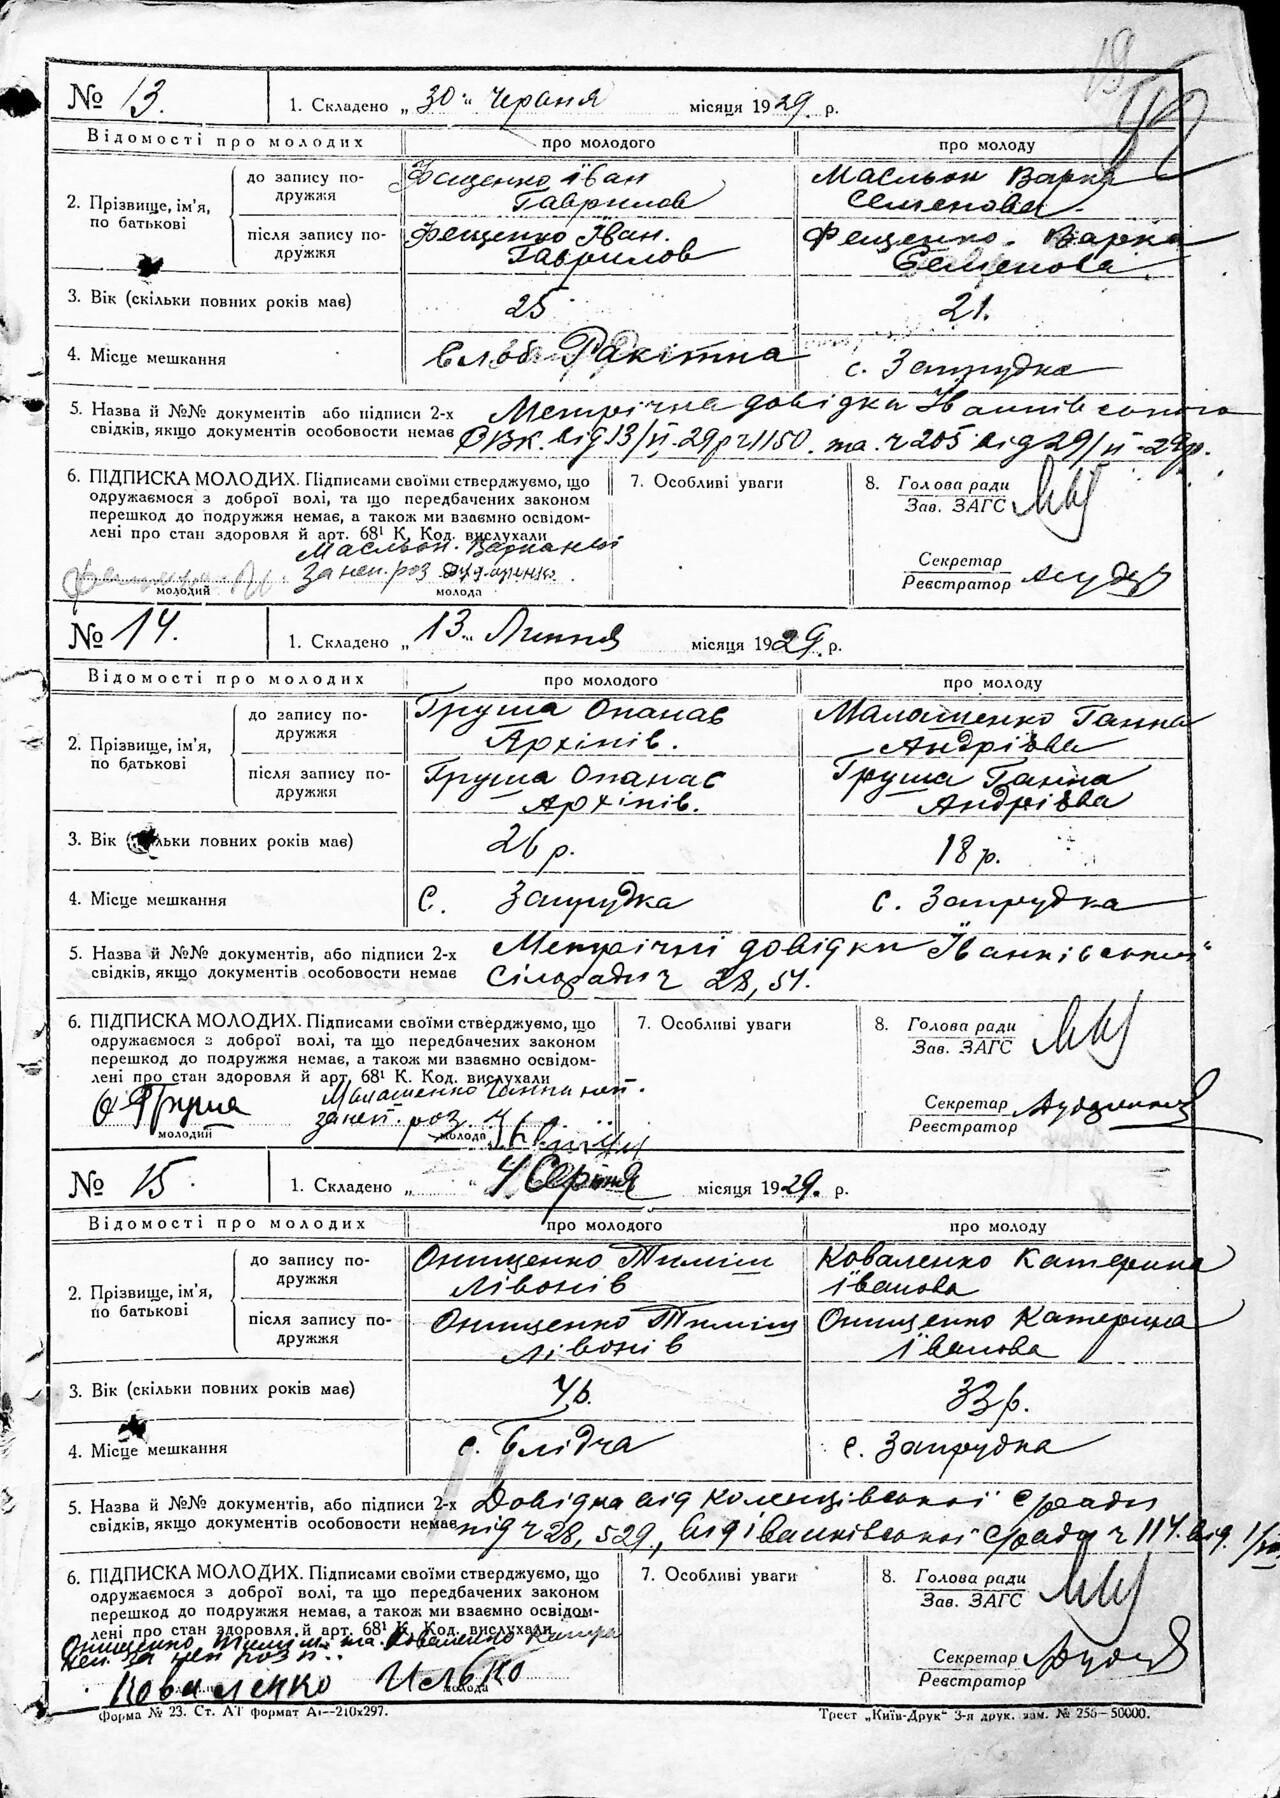 № 13. 1. Складено „ 30 " Червня місяця 1929. р.
Відомості про молодих про молодого про молоду
2. Прізвище, ім'я, по батькові
до запису по-
дружжя
Фещенко Їван
Гаврилов
Масльон Варка
Семенова.
після запису по-
дружжя
Фещенко Їван.
Гаврилов
Фещенко. Варка
Семенова
3. Вік (скільки повних років має) 25 21.
4. Місце мешкання Слоб. Ракітна с. Запрудка
5. Назва й №№ документів або підписи 2-х Метрічна довідка Їванківського
свідків, якщо документів особовости немає РВК. від 13/VI-29р ч 1150. та. ч 205 від 29/VI-29р.
6. ПІДПИСКА МОЛОДИХ. Підписами своїми стверджуємо, що
одружаємося з доброї волі, та що передбачених законом
перешкод до подружжя немає, а також ми взаємно освідом-
лені про стан здоровля й арт. 68¹ К. Код. вислухали
Масльон. Варка неп
За неп. роз
молодий молода
7. Особливі уваги
8. Голова ради
Зав. ЗАГС
Секретар
Реєстратор
№ 14. 1. Складено „ 13 " Липня місяця 1929. р.
Відомості про молодих про молодого про молоду
2. Прізвище, ім'я, по батькові
до запису по-
дружжя
Груша Опанас
Архіпів.
Малашенко Ганна
Андрієва
після запису по-
дружжя
Груша Опанас
Архіпів.
Груша Ганна
Андрієва
3. Вік (скільки повних років має) 26 р. 18 р.
4. Місце мешкання с. Запрудка с. Запрудка
5. Назва й №№ документів, або підписи 2-х Метрічні довідки Їванківської
свідків, якщо документів особовости немає Сілоради ч 28, 51.
6. ПІДПИСКА МОЛОДИХ. Підписами своїми стверджуємо, що
одружаємося з доброї волі, та що передбачених законом
перешкод до подружжя немає, а також ми взаємно освідом-
лені про стан здоровля й арт. 68¹ К. Код. вислухали
Малашенко Ганни неп.
О Груша за неп. роз.
молодий молода
7. Особливі уваги
8. Голова ради
Зав. ЗАГС
Секретар
Реєстратор
№ 15. 1. Складено „ " 4 Серпня місяця 1929. р.
Відомості про молодих про молодого про молоду
2. Прізвище, ім'я, по батькові
до запису по-
дружжя
Онищенко Тиміш
Лівонів
Коваленко Катерина
Їванова
після запису по-
дружжя
Онищенко Тиміш
Лівонів
Онищенко Катерина
Їванова
3. Вік (скільки повних років має) 33 р.
4. Місце мешкання с. Блідча с. Запрудка
5. Назва й №№ документів, або підписи 2-х Довідка від Коленцівської с/ради
свідків, якщо документів особовости немає під ч 28, 529, від Їванківської с/ради ч 114. від. 1/VIII
6. ПІДПИСКА МОЛОДИХ. Підписами своїми стверджуємо, що
одружаємося з доброї волі, та що передбачених законом
перешкод до подружжя немає, а також ми взаємно освідом-
лені про стан здоровля й арт. 68¹ К. Код. вислухали
Онищенко Тиміш та Коваленко Катра
неп. за неп роз п..
Коваленко Илько
молода
7. Особливі уваги
8. Голова ради
Зав. ЗАГС
Секретар
Реєстратор
Форма № 23. Ст. АТ формат А₄—210х297.
Трест „Київ-Друк" 3-я друк. зам. № 256—50000.